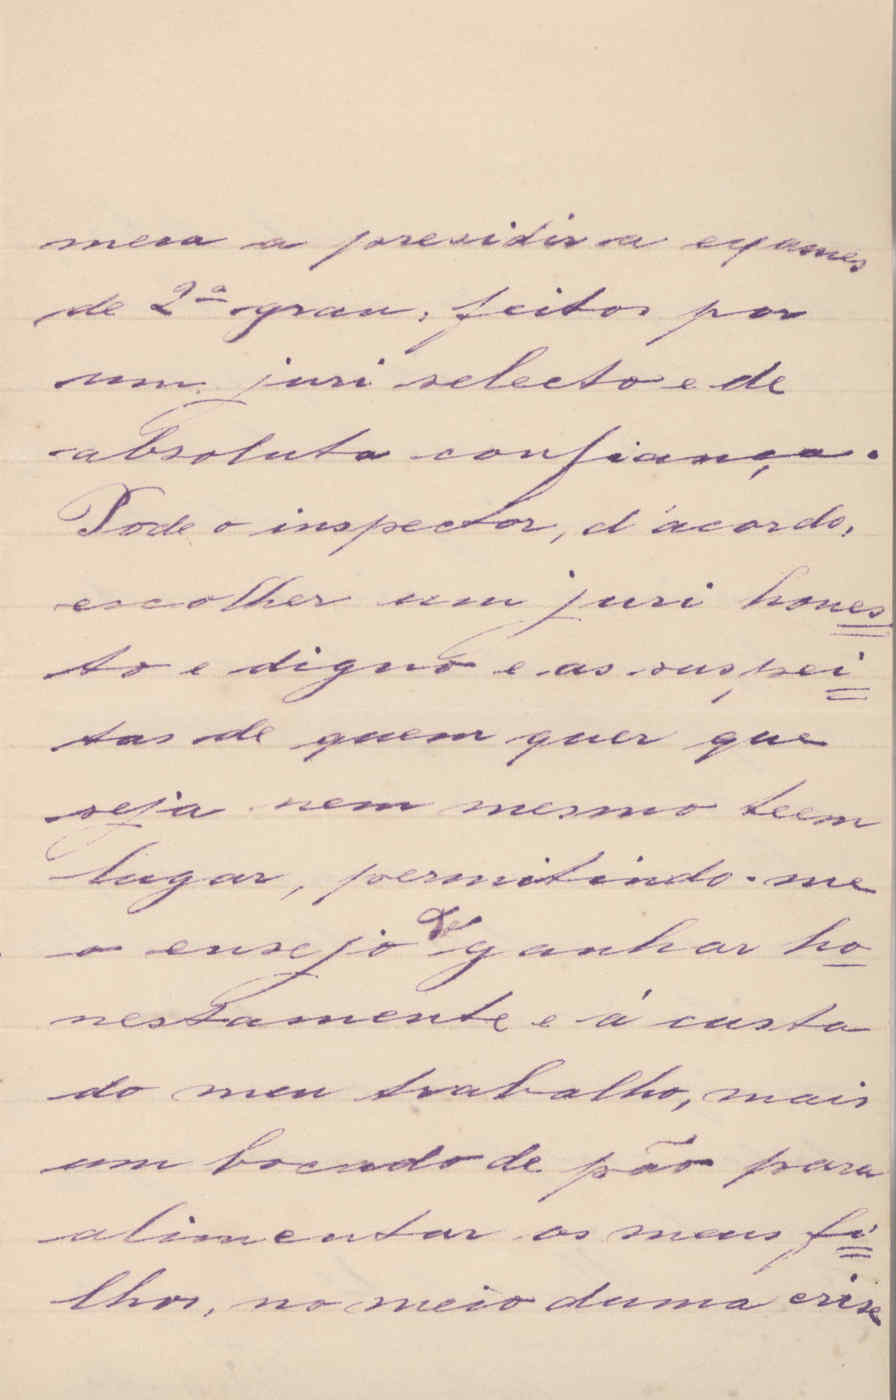 mera a presidir a exames
de 2º grau; feitos por
um juri selecto e de
absoluta confiança.
Pode o inspector, d'acordo,
escolher um juri hones
to e digno e as suspei
tas de quem quer que
seja nem mesmo teem
lugar, permitindo-me
o ensejo de ganhar ho
nestamente e á custa
do meu trabalho, mais
um bocado de pão para
alimentar os meus fi
lhos, no meio duma crise